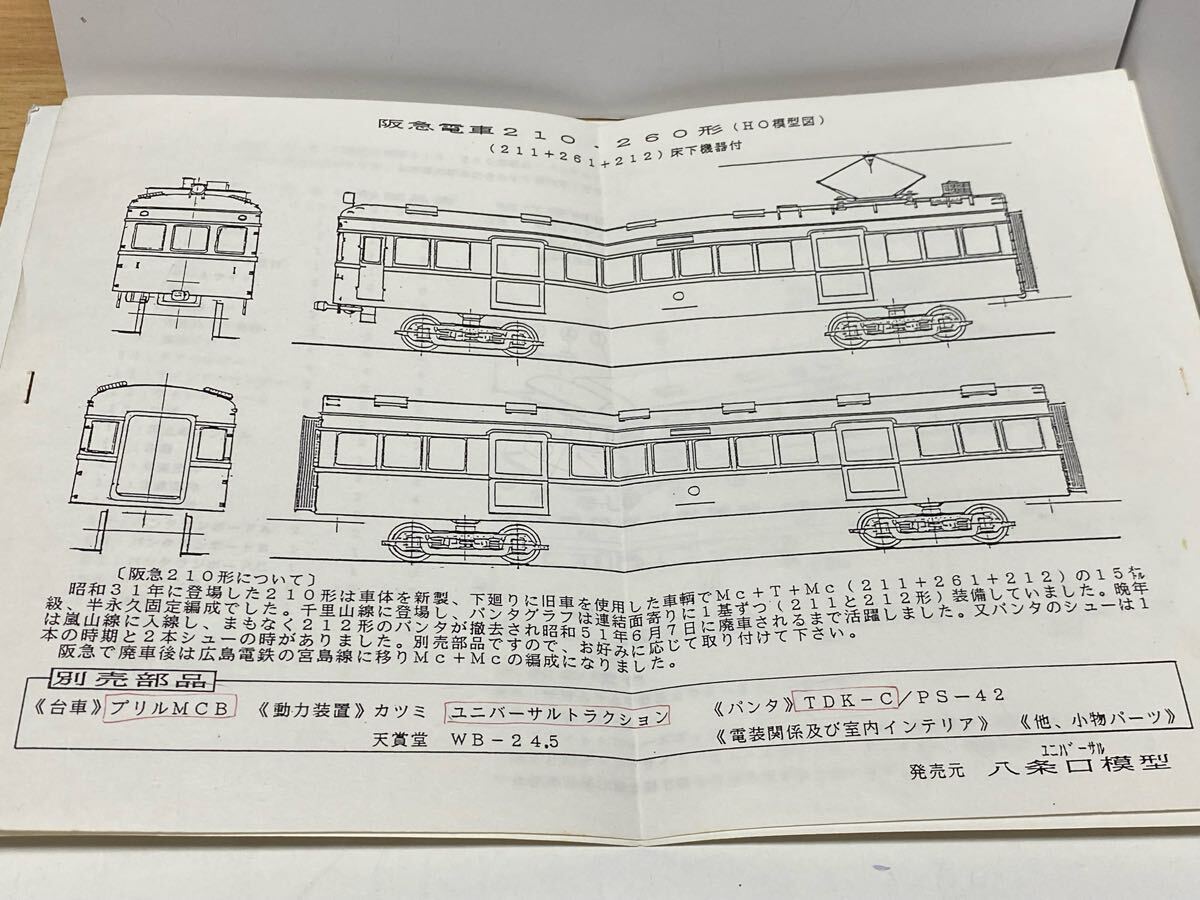 阪急電車210、260形(HO模型図)
(211+261+212)床下機器付
〔阪急210形について〕
昭和31年に登場した210形は車体を新製、下廻りに旧車を使用した車輌でMc+T+Mc(211+261+212)の15㍍
級、半永久固定編成でした。千里山線に登場し、パンタグラフは連結面寄りに1基ずつ(211と212形)装備していました。晩年
は嵐山線に入線し、まもなく212形のパンタが撤去され昭和51年6月7日に廃車されるまで活躍しました。又パンタのシューは1
本の時期と2本シューの時がありました。別売部品ですので、お好みに応じて取り付けて下さい。
阪急で廃車後は広島電鉄の宮島線に移りMc+Mcの編成になりました。
別売部品
《台車》ブリルMCB 《動力装置》カツミ ユニバーサルトラクション 《パンタ》TDK-C/PS-42
天賞堂 WB-24.5 《電装関係及び室内インテリア》 《他、小物パーツ》
ユニバーサル
発売元 八条口模型